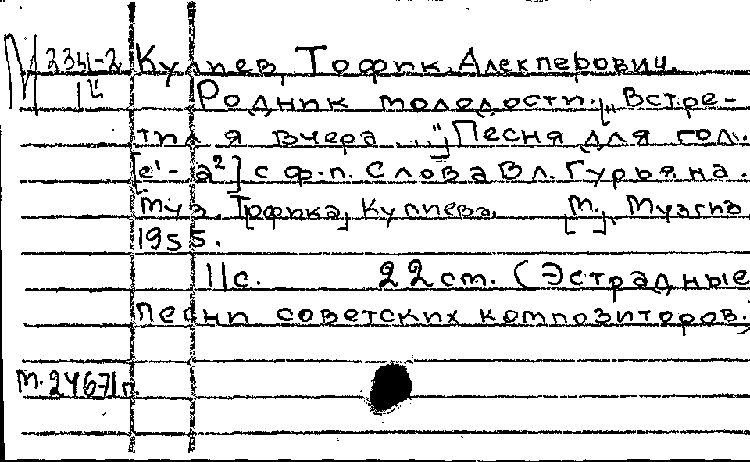 М 234-2 Кулиев, Тофик Алекперович.
1ц Родник молодости. [„Встре-
тил я вчера ..."] Песня для гол.
[e¹-a²] с ф.-п. Слова Вл. Гурьяна.
Муз. Т[офика] Кулиева. [М.], Музгиз
1955.
11с. 22 ст. (Эстрадные
песни советских композиторов.
м. 24671п